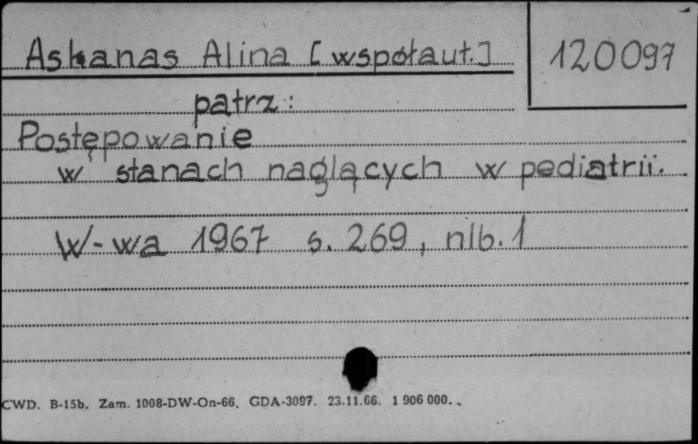 Askanas Alina [współaut.]
120097
patrz:
Postępowanie
w stanach naglących w pediatrii.
W-wa 1967 s. 269, nlb. 1
CWD. B-15b. Zam. 1008-DW-On-66. GDA-3097. 23.11.66. 1 906 000.